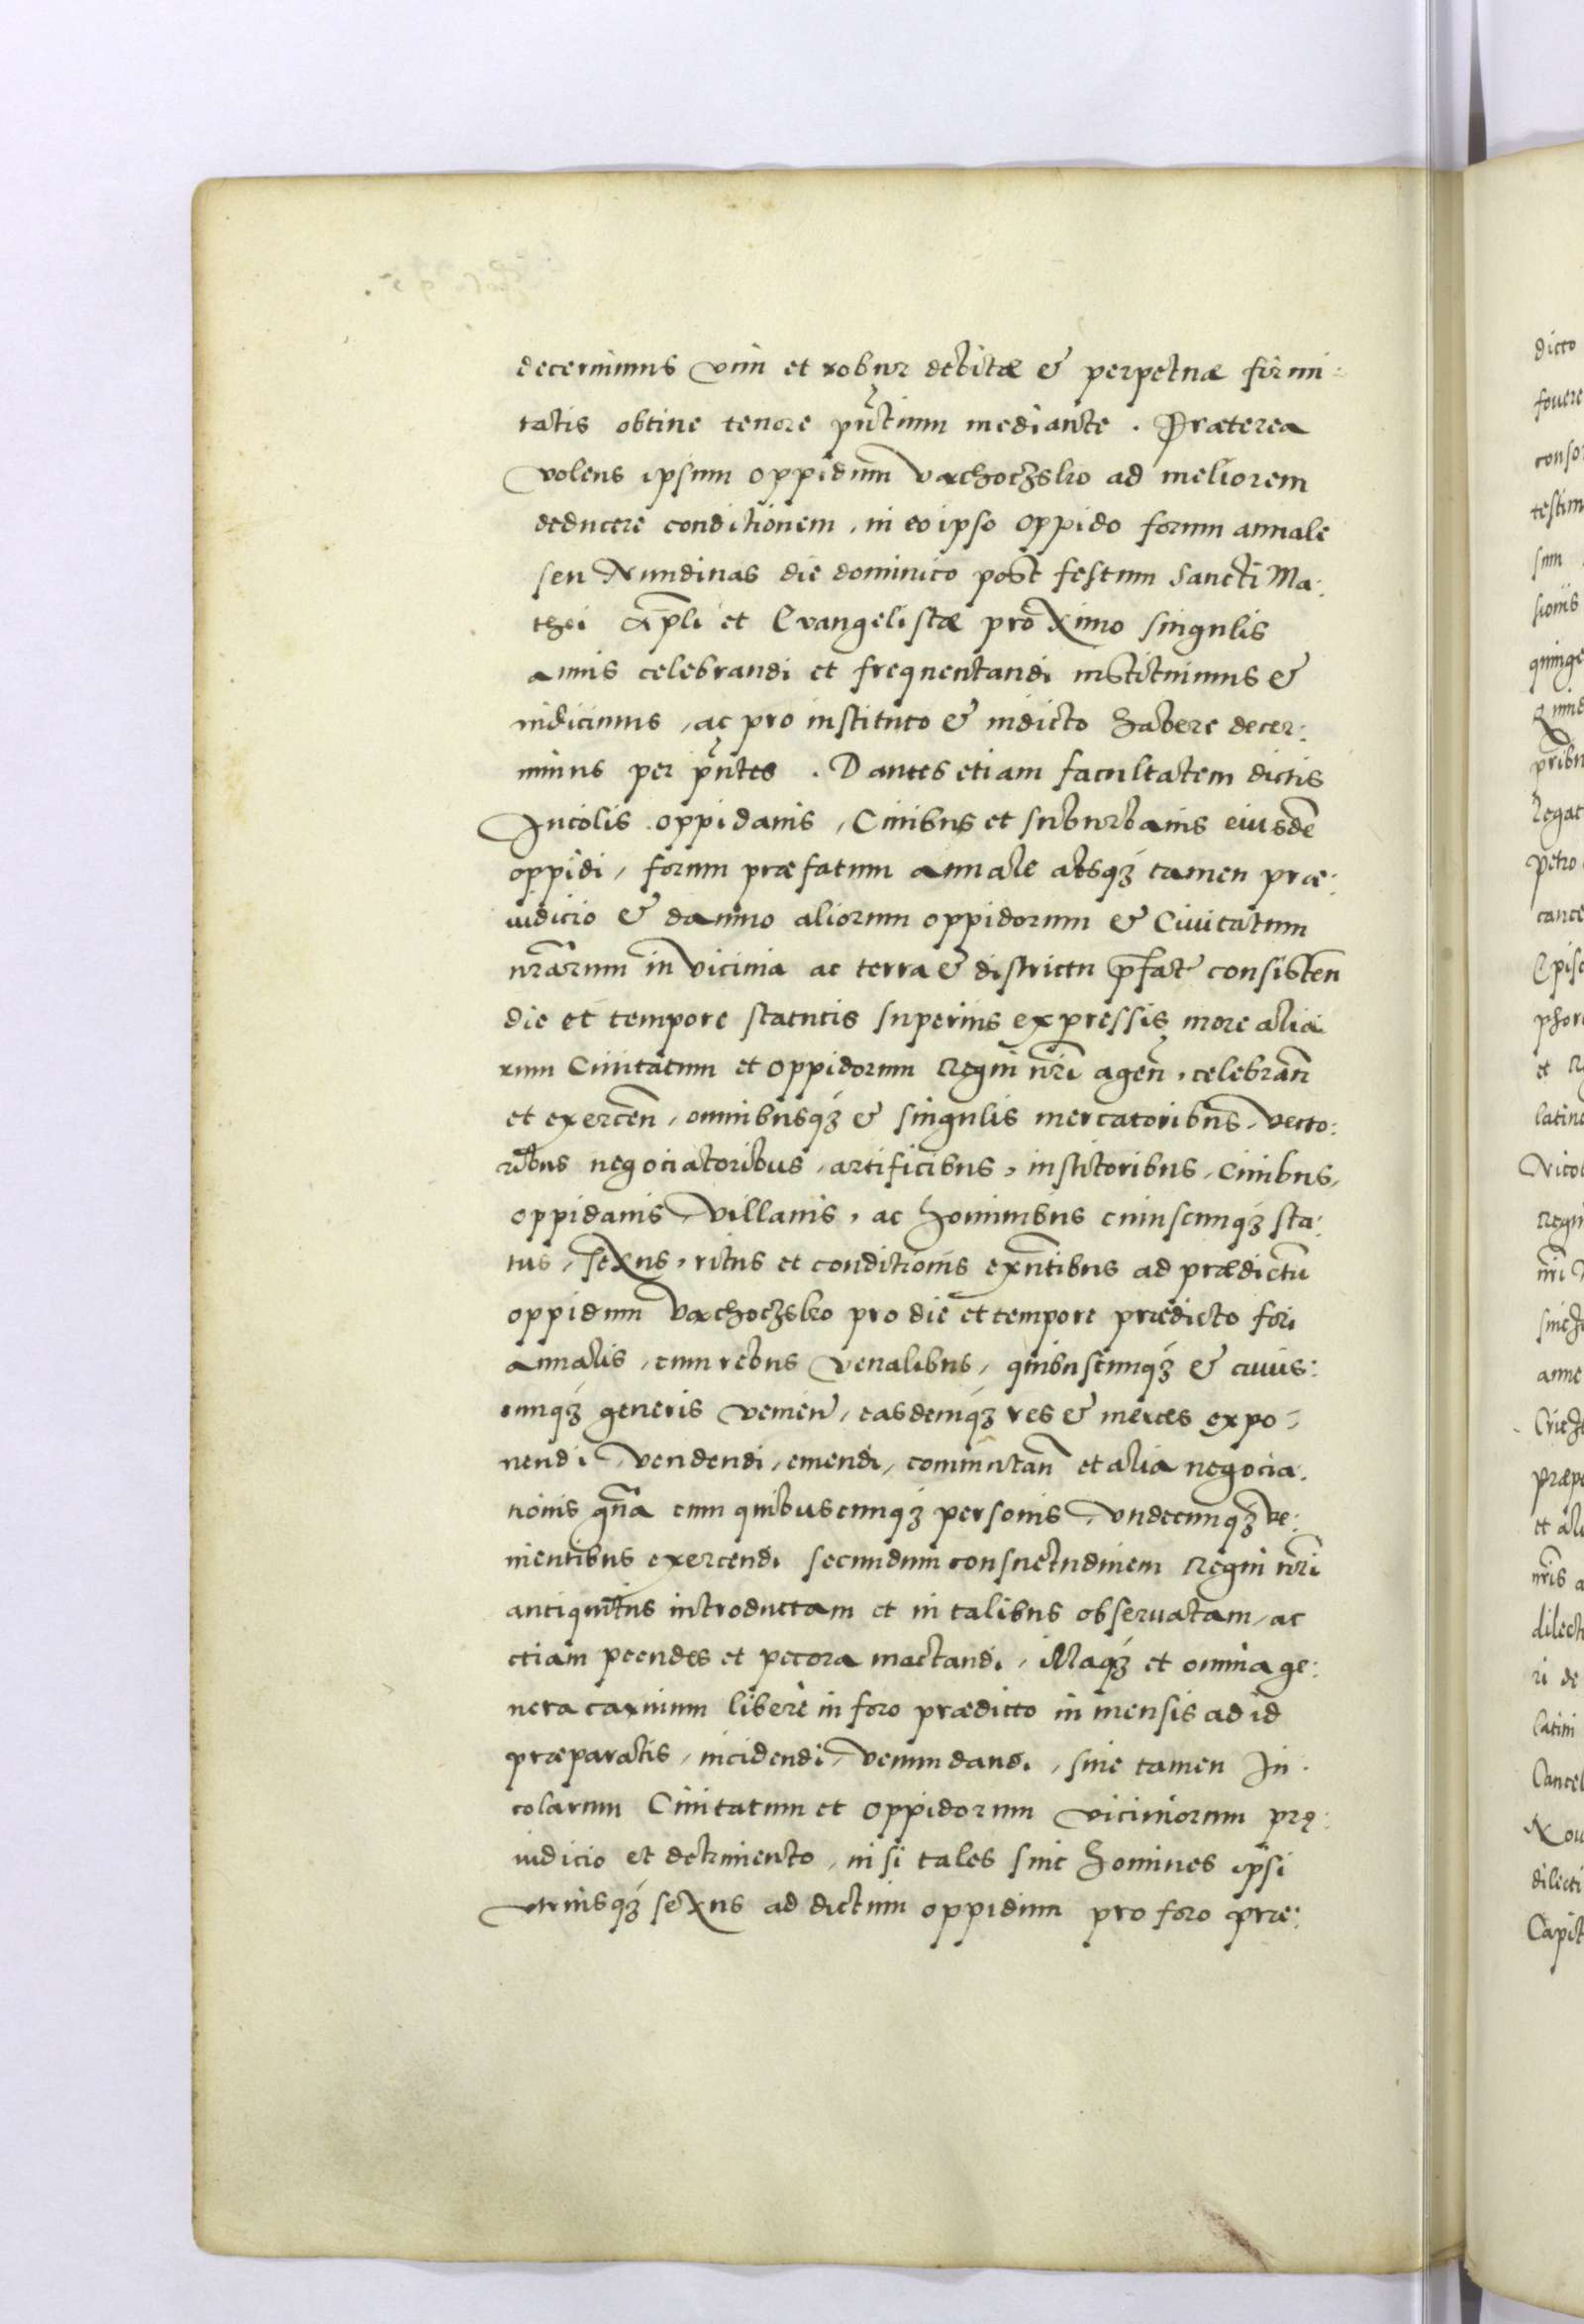 decernimus vim et robur debitæ & perpetuæ firmi:
tatis obtine tenore pñtium mediante. Præterea
volens ipsum oppidum Vachoczsko ad meliorem
deducere conditionem, in eo ipso oppido forum annale
seu Nundinas die dominico post festum Sancti Ma:
thei Apli et Evangelistæ proximo singulis
annis celebrandi et frequentandi instituimus &
indicimus, ac pro instituto & indicto habere decer:
nimus per pñtes. Dantes etiam facultatem dictis
Incolis oppidanis, Ciuibus et suburbanis eiusdē
oppidi, forum præfatum annale absqȝ tamen præ:
iudicio & damno aliorum oppidorum & Ciuitatum
nrārum in vicinia ac terra & districtu p̄fat consisten̄
die et tempore statutis superius expressis more alia
rum Ciuitatum et oppidorum Regni nr̄i agen̄, celebran̄
et exercen̄, omnibusqȝ & singulis mercatoribus, vecto:
ribus negociatoribus, artificibus, institoribus, Ciuibus,
oppidanis, Villanis, ac hominibus cuiuscunqȝ sta:
tus, sexus, ritus et conditionis exn̄tibus ad prædictū
oppidum Vachoczsko pro die et tempore prædicto fori
annalis, cum rebus venalibus, quibuscunqȝ & cuius:
cunqȝ generis venien̄, easdemqȝ res & merces expo:
nendi, vendendi, emendi, commutan̄ et alia negocia:
tionis gn̄a cum quibuscunqȝ personis, undecunqȝ ve:
nientibus exercendi secundum consuetudinem Regni nr̄i
antiquitus introductam et in talibus obseruatam, ac
etiam pecudes et pecora mactandi, illaqȝ et omnia ge:
nera carnium libere in foro prædicto in mensis ad id
præparatis, incidendi, venundandi, sine tamen In:
colarum Ciuitatum et oppidorum viciniorum prę:
iudicio et detrimento, nisi tales sint homines ip̄si
utriusqȝ sexus ad dictum oppidum pro foro præ: